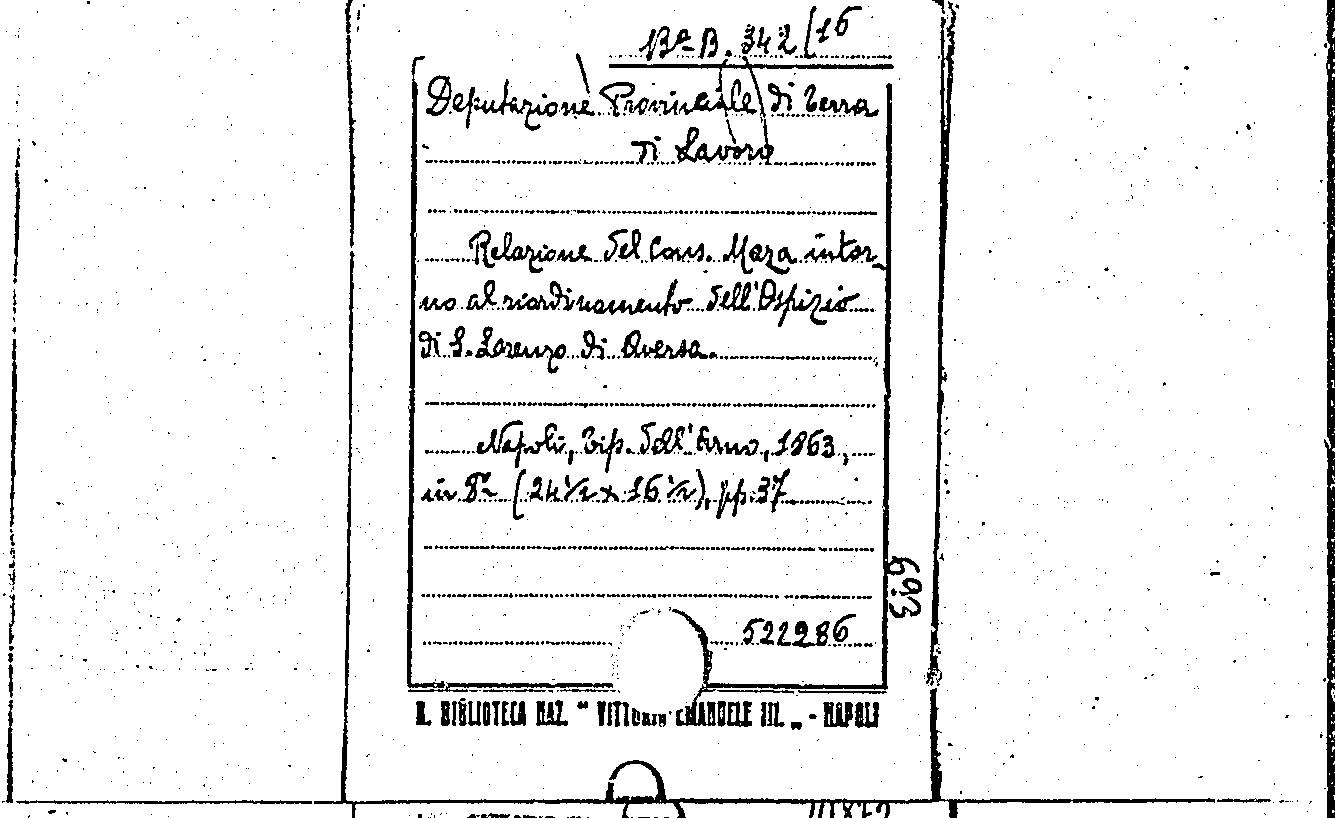 Bª B. 342/16
Deputazione Provinciale di Terra
di Lavoro
Relazione del Cons. Maza intor-
no al riordinamento dell'Ospizio
di S. Lorenzo di Aversa.
Napoli, Tip. dell'Arno, 1863,
in 8º (24 1/2 x 16 1/2), pp. 37
693
522986
R. BIBLIOTECA NAZ. "VITTORIO EMANUELE III." - NAPOLI